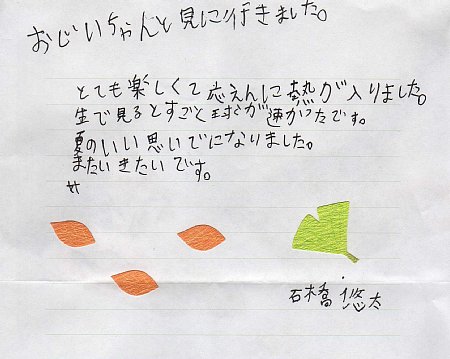 おじいちゃんと見に行きました。
とても楽しくて応えんに熱が入りました。
生で見るとすごと球が速かったです。
夏のいい思いでになりました。
またいきたいです。
石橋 悠太